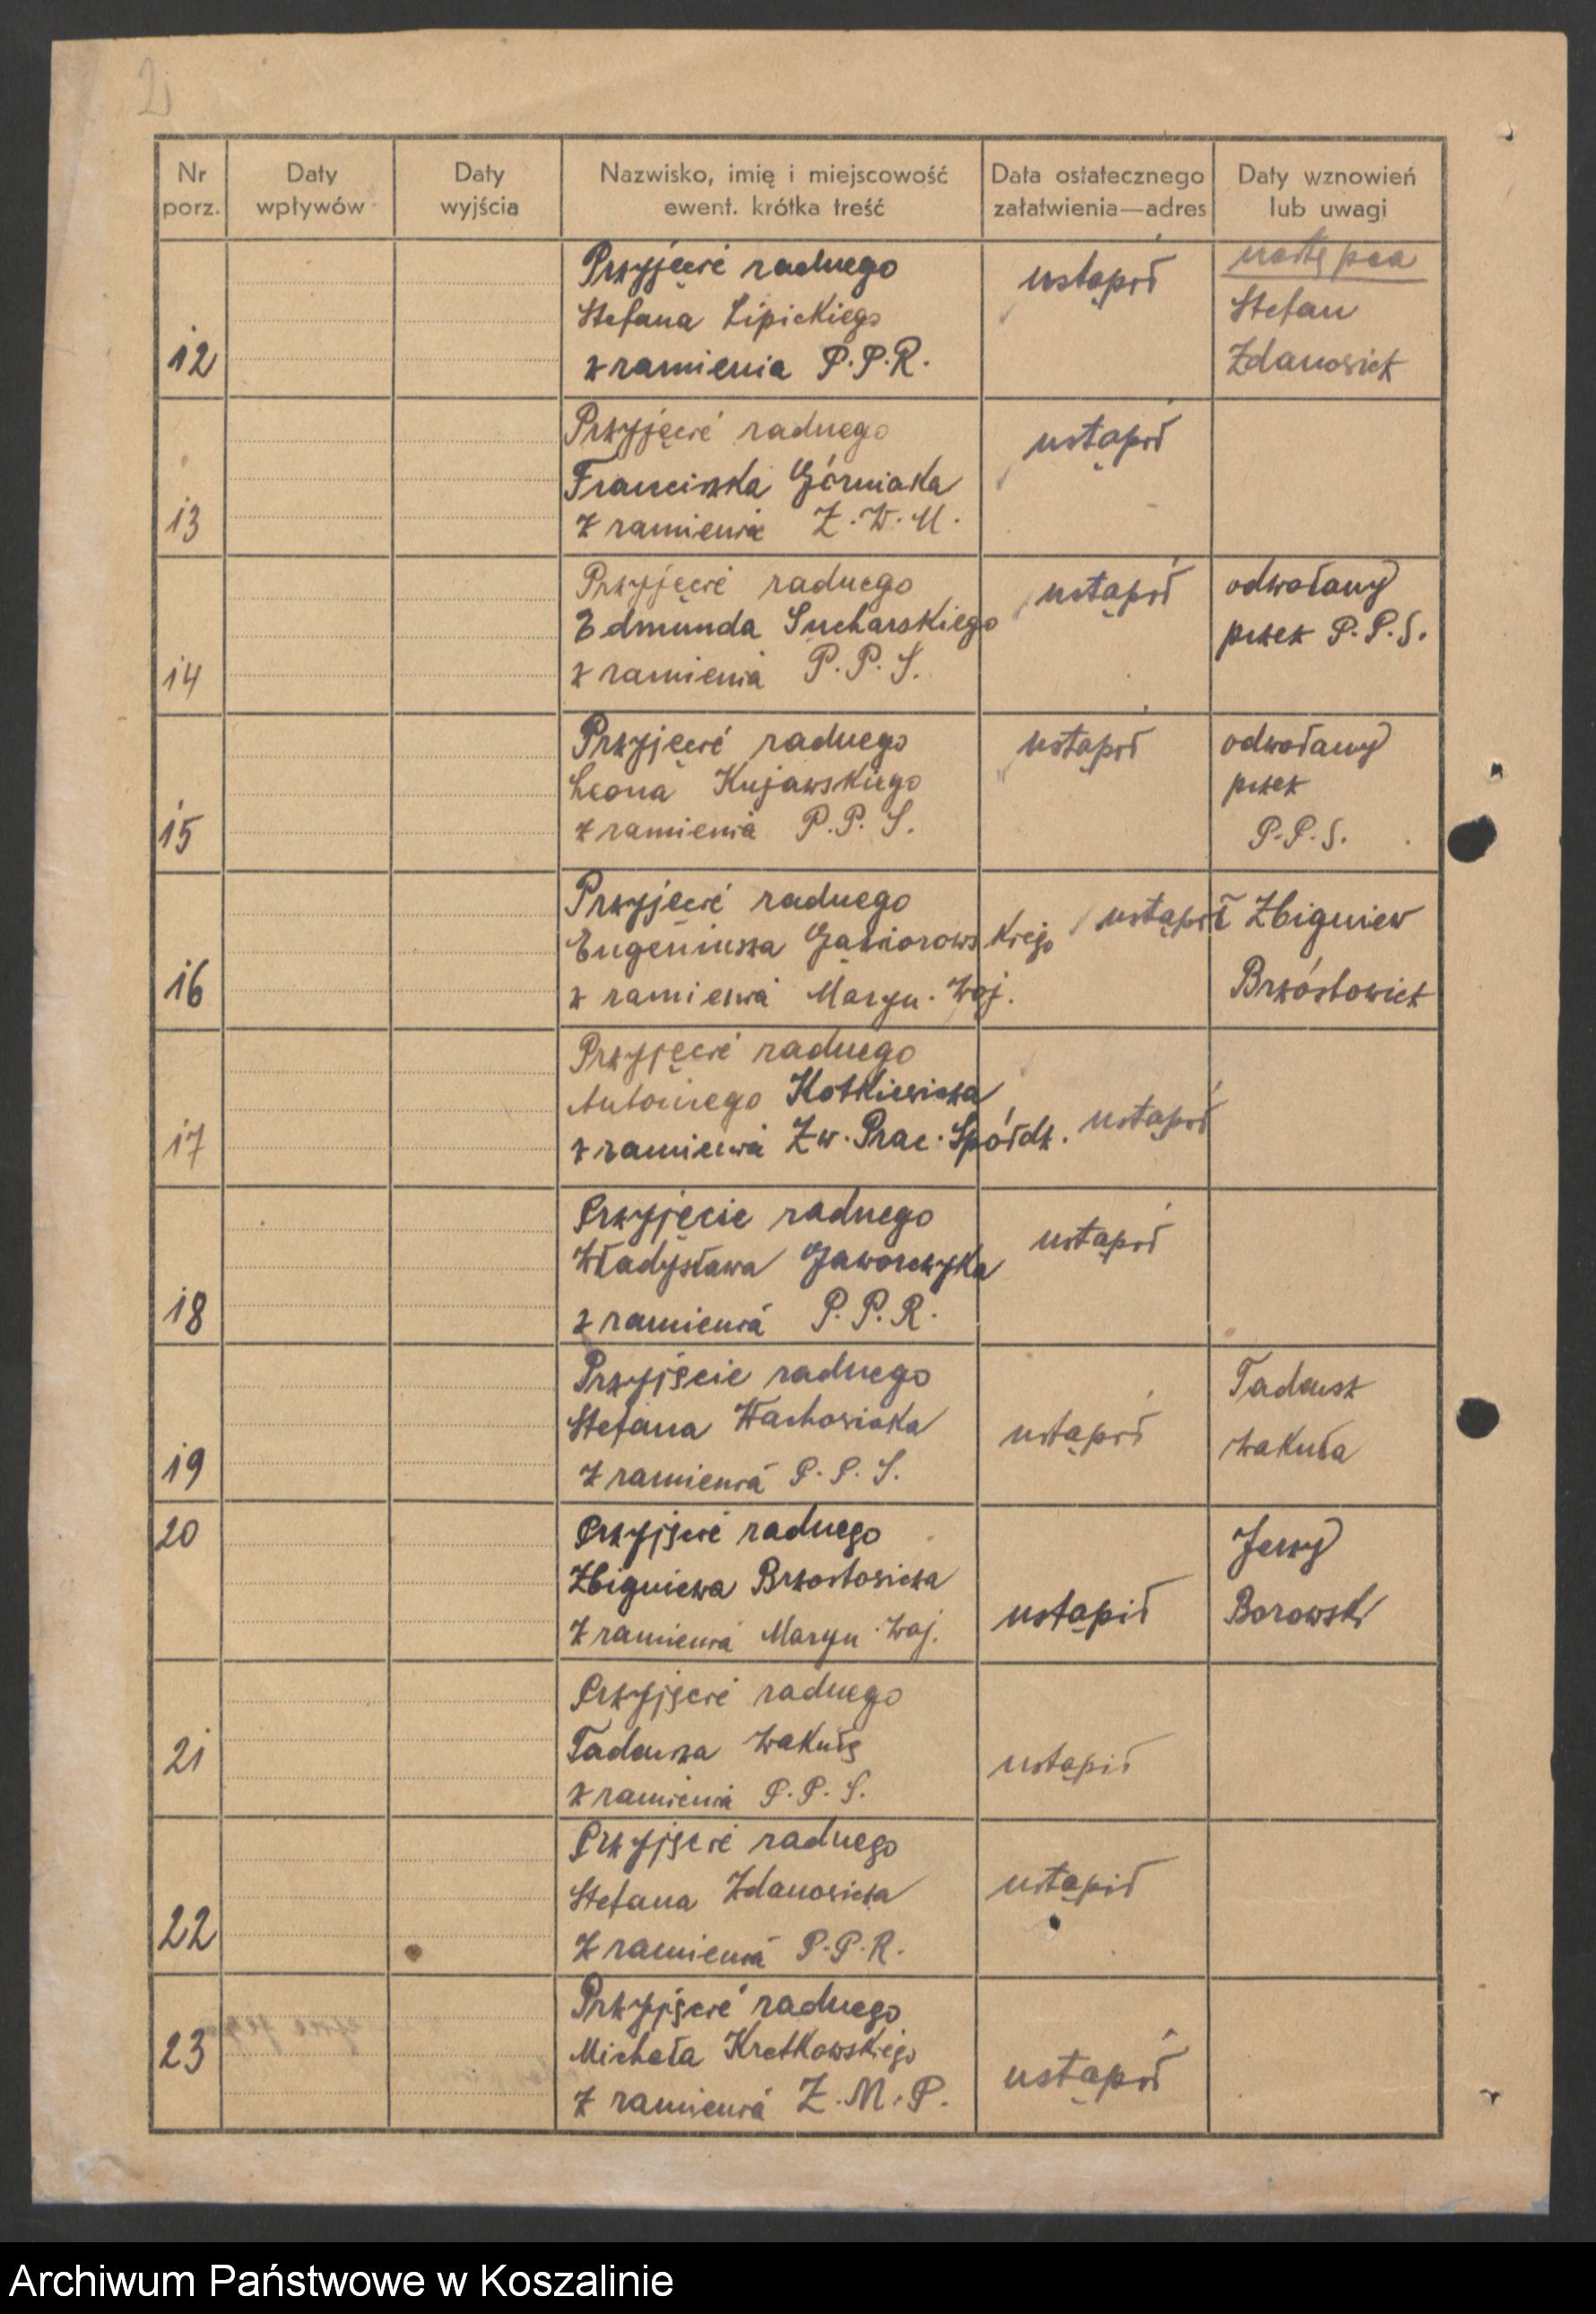 2
Nr porz.
Daty wpływów
Daty wyjścia
Nazwisko, imię i miejscowość ewent. krótka treść
Data ostatecznego załatwienia—adres
Daty wznowień lub uwagi
12
Przyjęcie radnego
Stefana Lipickiego
z ramienia P.P.R.
ustąpił
następca
Stefan
Zdanowicz
13
Przyjęcie radnego
Franciszka Górniaka
z ramienia Z.W.M.
ustąpił
14
Przyjęcie radnego
Edmunda Sucharskiego
z ramienia P.P.S.
ustąpił
odwołany
przez P.P.S.
15
Przyjęcie radnego
Leona Kujawskiego
z ramienia P.P.S.
ustąpił
odwołany
przez
P.P.S.
16
Przyjęcie radnego
Eugeniusza Gąsiorowskiego
z ramienia Maryn. Woj.
ustąpił
Zbigniew
Brzóstowicz
17
Przyjęcie radnego
Antoniego Kotkiewicza
z ramienia Zw. Prac. Spółdz.
ustąpił
18
Przyjęcie radnego
Władysława Jaworczyka
z ramienia P.P.R.
ustąpił
19
Przyjęcie radnego
Stefana Wachowiaka
z ramienia P.P.S.
ustąpił
Tadeusz
Wakuła
20
Przyjęcie radnego
Zbigniewa Brzostowicza
z ramienia Maryn. Woj.
ustąpił
Jerzy
Borowski
21
Przyjęcie radnego
Tadeusza Wakułę
z ramienia P.P.S.
ustąpił
22
Przyjęcie radnego
Stefana Zdanowicza
z ramienia P.P.R.
ustąpił
23
Przyjęcie radnego
Michała Kretkowskiego
z ramienia Z.M.P.
ustąpił
Archiwum Państwowe w Koszalinie